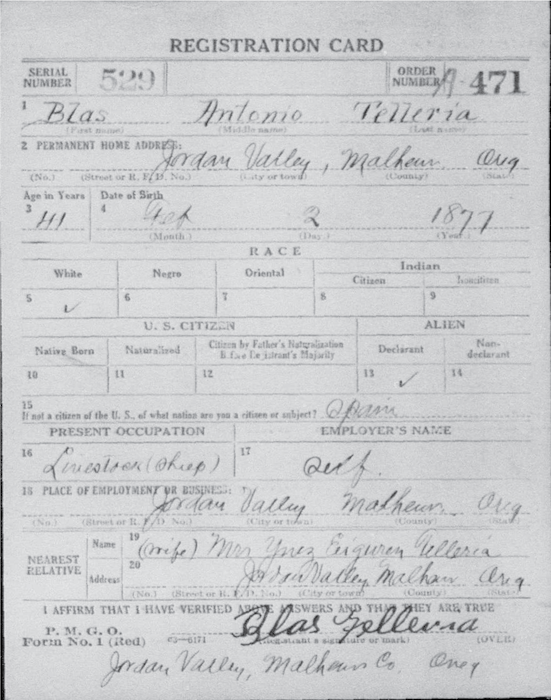 REGISTRATION CARD
SERIAL NUMBER 529 ORDER NUMBER A 471
1 Blas Antonio Telleria
(First name) (Middle name) (Last name)
2 PERMANENT HOME ADDRESS: Jordan Valley, Malheur Oreg
(No.) (Street or R. F. D. No.) (City or town) (County) (State)
Age in Years Date of Birth
3 41 4 Feb 2 1877
(Month) (Day) (Year)
RACE
White Negro Oriental Indian
Citizen Noncitizen
5 ✓ 6 7 8 9
U. S. CITIZEN ALIEN
Native Born Naturalized Citizen by Father's Naturalization Before Registrant's Majority Declarant Non-declarant
10 11 12 13 ✓ 14
15 If not a citizen of the U. S., of what nation are you a citizen or subject? Spain
PRESENT OCCUPATION EMPLOYER'S NAME
16 Livestock (Sheep) 17 Self.
18 PLACE OF EMPLOYMENT OR BUSINESS: Jordan Valley Malheur Oreg
(No.) (Street or R. F. D. No.) (City or town) (County) (State)
NEAREST RELATIVE Name 19 (wife) Mrs Ynez Eiguren Telleria
Address 20 Jordan Valley, Malheur Oreg.
(No.) (Street or R. F. D. No.) (City or town) (County) (State)
I AFFIRM THAT I HAVE VERIFIED ABOVE ANSWERS AND THAT THEY ARE TRUE
P. M. G. O.
Form No. 1 (Red) c3—6171 Blas Telleria
(Registrant's signature or mark) (OVER)
Jordan Valley, Malheur Co. Oreg